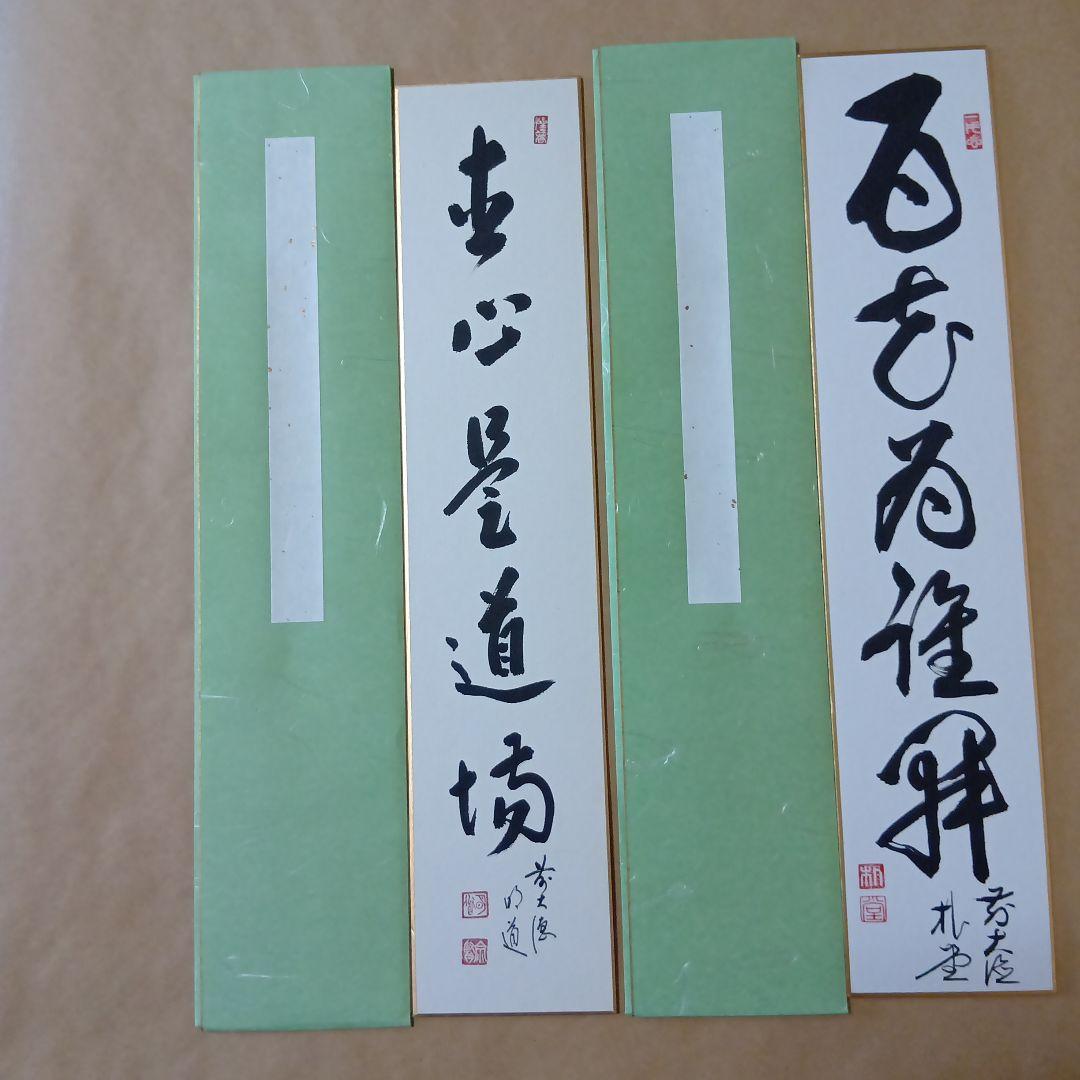 直心是道場
前大徳
明道
百花為誰開
前大徳
朴堂